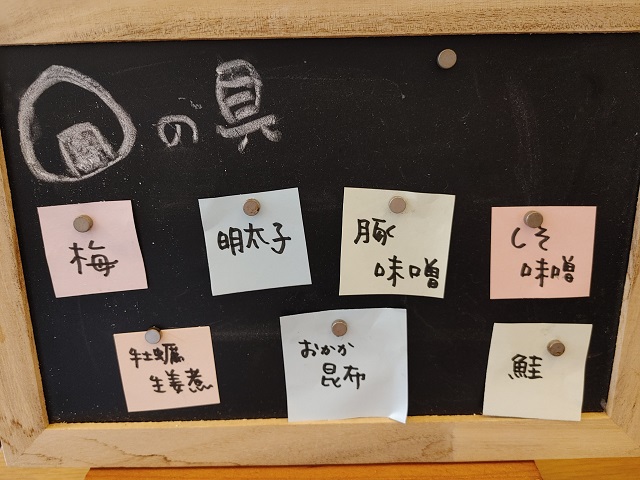 の具
梅
明太子
豚
味噌
しそ
味噌
牡蠣
生姜煮
おかか
昆布
鮭